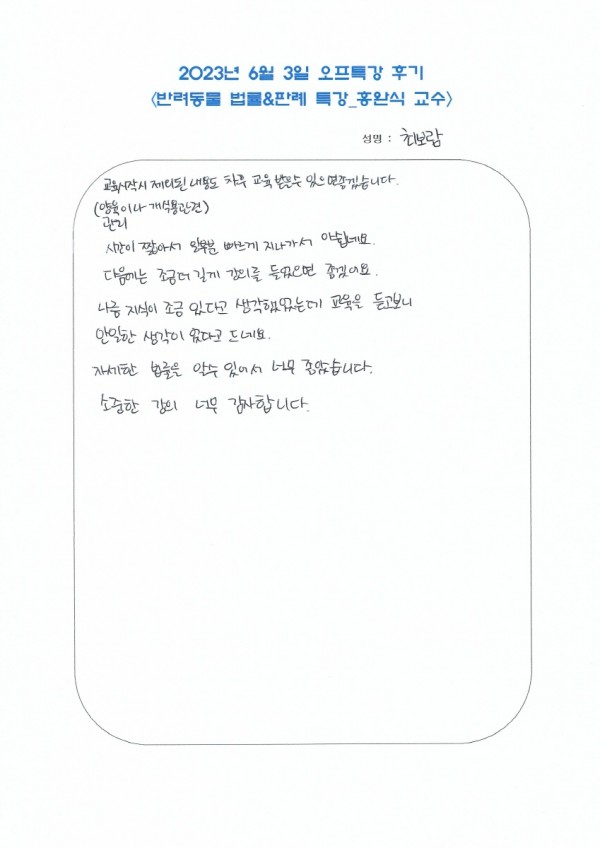 2023년 6월 3일 오프특강 후기
<반려동물 법률&판례 특강_홍완식 교수>
성명 : 최보람
교육시작시 제외된 내용도 차후 교육 받을수 있으면좋겠습니다.
(양육이나
관리
시간이 짧아서 일부분 빠르게 지나가서 아쉽네요.
다음에는 조금더 길게 강의를 들었으면 좋겠어요.
나름 지식이 조금 있다고 생각했었는데 교육을 듣고보니
안일한 생각이 었다고 드네요.
자세한 법률을 알수 있어서 너무 좋았습니다.
소중한 강의 너무 감사합니다.